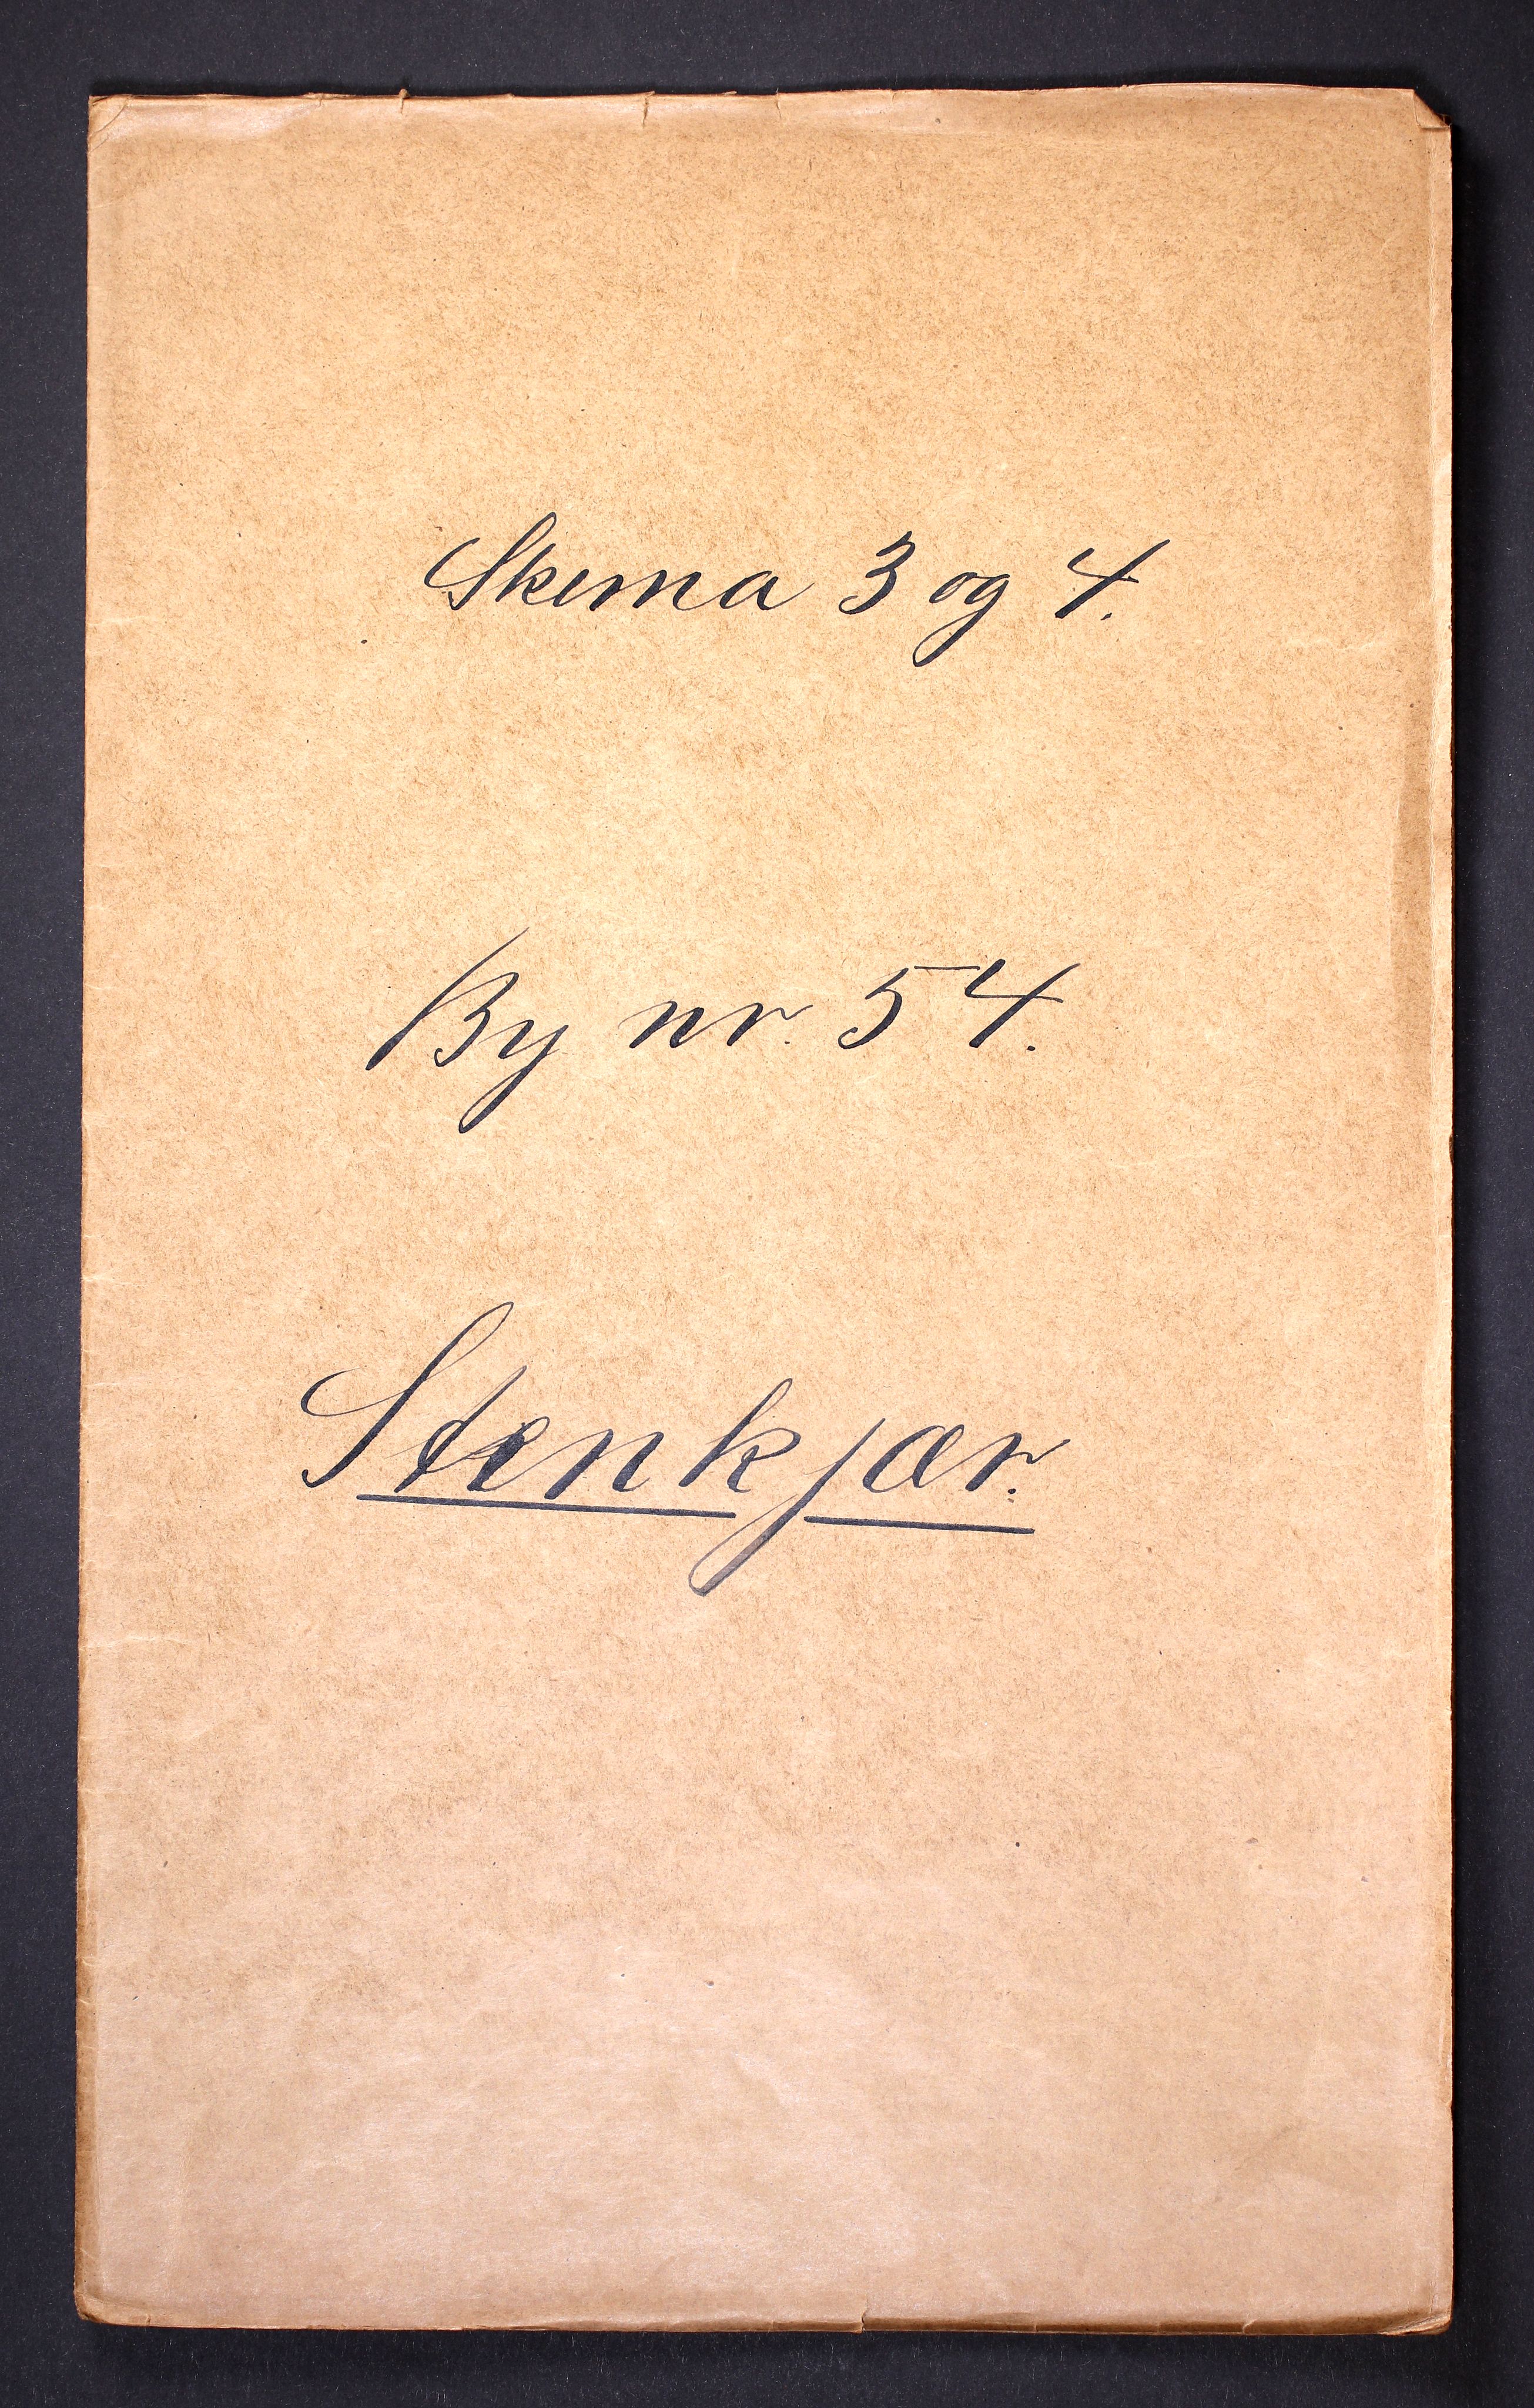 Skema 3 og 4.
By nr. 54.
Stenkjær.